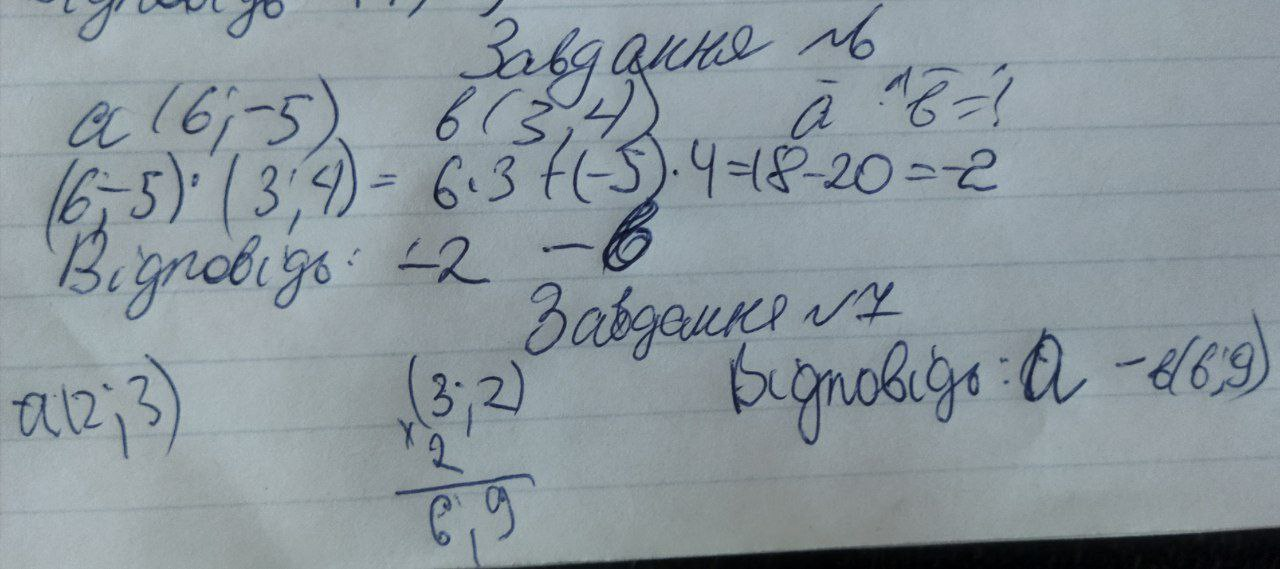 Завдання №6
a(6;-5) b(3,4) a̅ · b̅ = ?
(6;-5)·(3;4)= 6·3+(-5)·4=18-20=-2
Відповідь: -2 -б
Завдання №7
a(2;3) (3;2) Відповідь: а -в(6;9)
×2
6;9